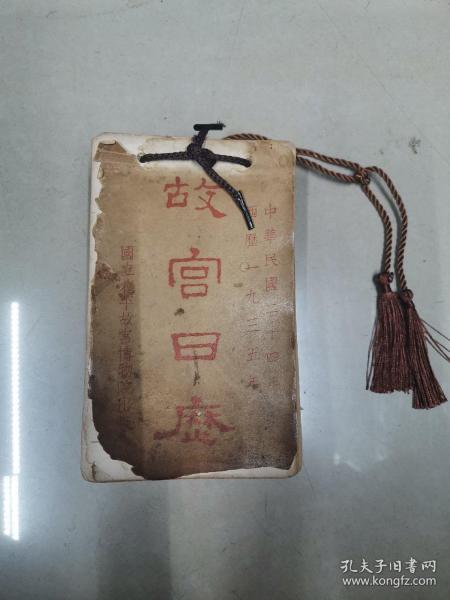 中華民國二十四年
西歷一九三五年
故宮日歷
國立北平故宮博物院印
孔夫子旧书网
www.kongfz.com